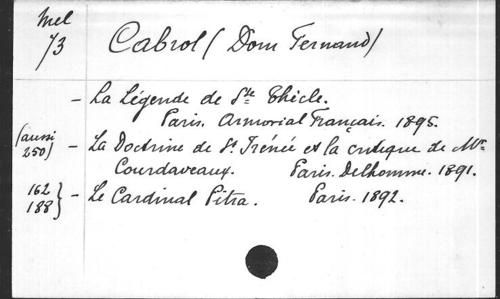 Mel
73
Cabrol (Dom Fernand)
- La Légende de Ste Thècle.
Paris. Armorial Français. 1895.
(aussi
250)
- La Doctrine de St Irénée et la critique de Mr.
Courdaveaux. Paris. Delhomme. 1891.
162
188}
- Le Cardinal Pitra. Paris. 1892.